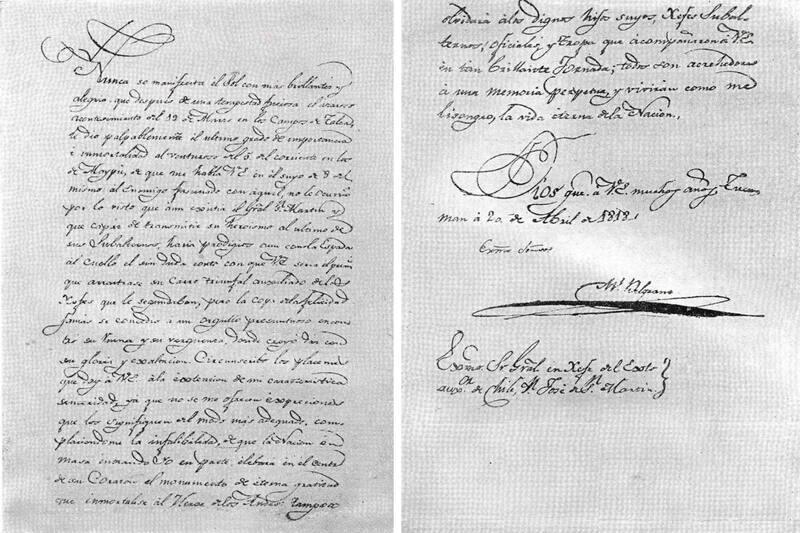 Nunca se manifiesta el Sol con mas brillantes y
alegria que despues de una tempestad furiosa el
acontecimiento del 19 de Marzo en los Campos de Talca,
le dio palpablemente el ultimo grado de importancia
é inmortalidad al venturoso del 5 del corriente en los
de Maypú, de que me habla V.E. en el suyo de 8 del
mismo al Enemigo fascinado con aquel, no le ocurrio
por lo visto que aun existia el Gral. Sn. Martin y
que capaz de transmitir su heroismo al ultimo de
sus Subalternos, haria prodigios aun con la Espada
al Cuello él sin duda contó con que V.E. seria el
que arrastrase su Carro triunfal auxiliado de los
Xefes que le segundaban, pero la copa de la felicidad
jamas se concedio á un orgullo presuntuoso encon
tró su y su verguenza, donde creyó dar con
su gloria y exaltacion. Circunscribo los placemes
que doy á V.E. á la extencion de mi caracteristica
sinceridad, ya que no se me ofrecen expreciones
que los signifiquen del modo más adequado, com
placiendome la infalibilidad, de que la Nacion en
masa insando yo en parte elebara en el centro
de su Corazon el monumento de eterna gratitud
que inmortalise al Heroe de los Andes: tampoco
olvidará á los dignos hijos suyos, Xefes Subal
ternos, oficiales, y Tropa que acompañaron á V.E.
en tan brillante Jornada; todos son acrehedores
á una memoria perpetua, y vivirán como me
lisongeo, la vida eterna de la Nacion.
Dios gue. á V.E. muchos años Tucu
man á 20 de Abril de 1818.
Exmo Señor
Ml. Belgrano
Exmo. Sr. Gral. in Xefe del Exto.
auxor. de Chile, Dn. José de Sn. Martin.